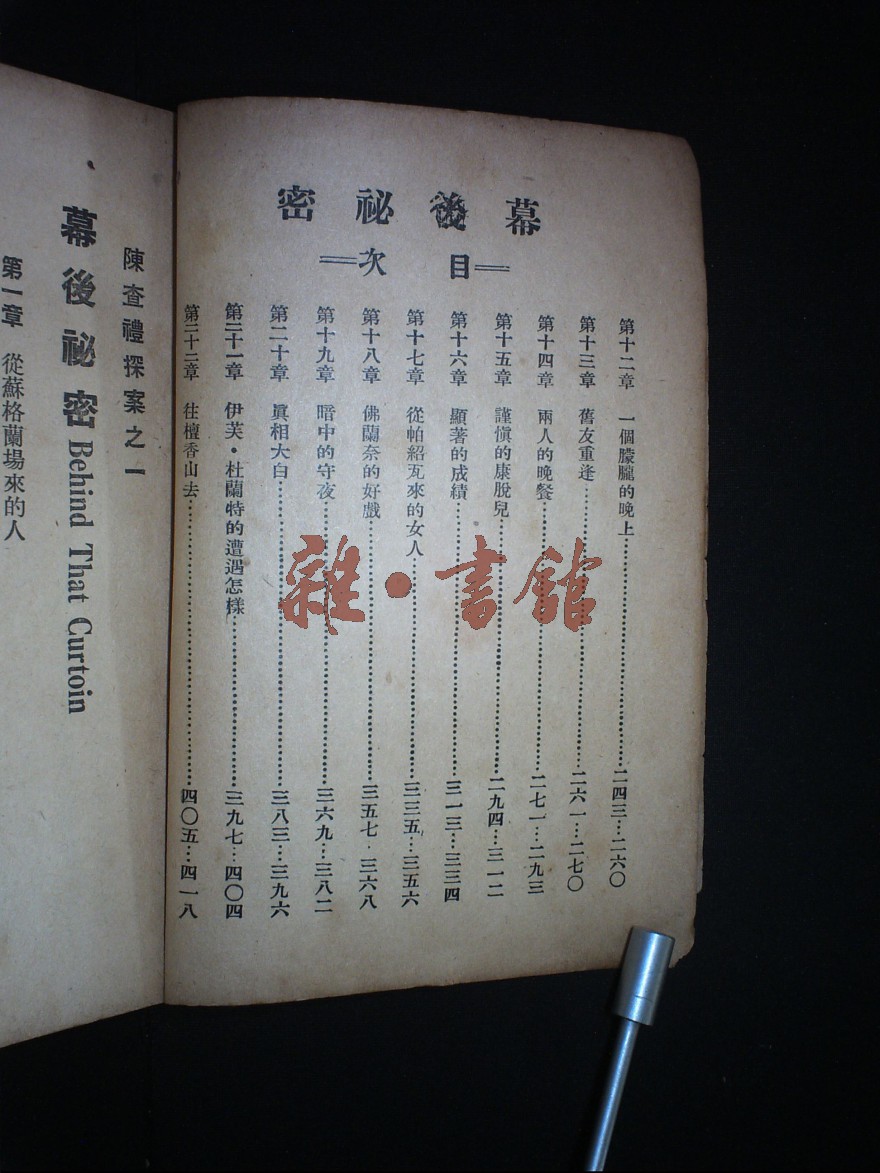 幕後祕密
＝目次＝
第十二章　一個朦朧的晚上…………二四三…二六〇
第十三章　舊友重逢…………二六一…二七〇
第十四章　兩人的晚餐…………二七一…二九三
第十五章　謹慎的康脫兒…………二九四…三一二
第十六章　顯著的成績…………三一三…三三四
第十七章　從帕紹瓦來的女人…………三三五…三五六
第十八章　佛蘭奈的好戲…………三五七·三六八
第十九章　暗中的守夜…………三六九…三八二
第二十章　眞相大白…………三八三…三九六
第二十一章　伊芙·杜蘭特的遭遇怎樣…………三九七…四〇四
第二十二章　往檀香山去…………四〇五…四一八
陳查禮探案之一
幕後祕密 Behind That Curtoin
第一章　從蘇格蘭場來的人
雜·書館